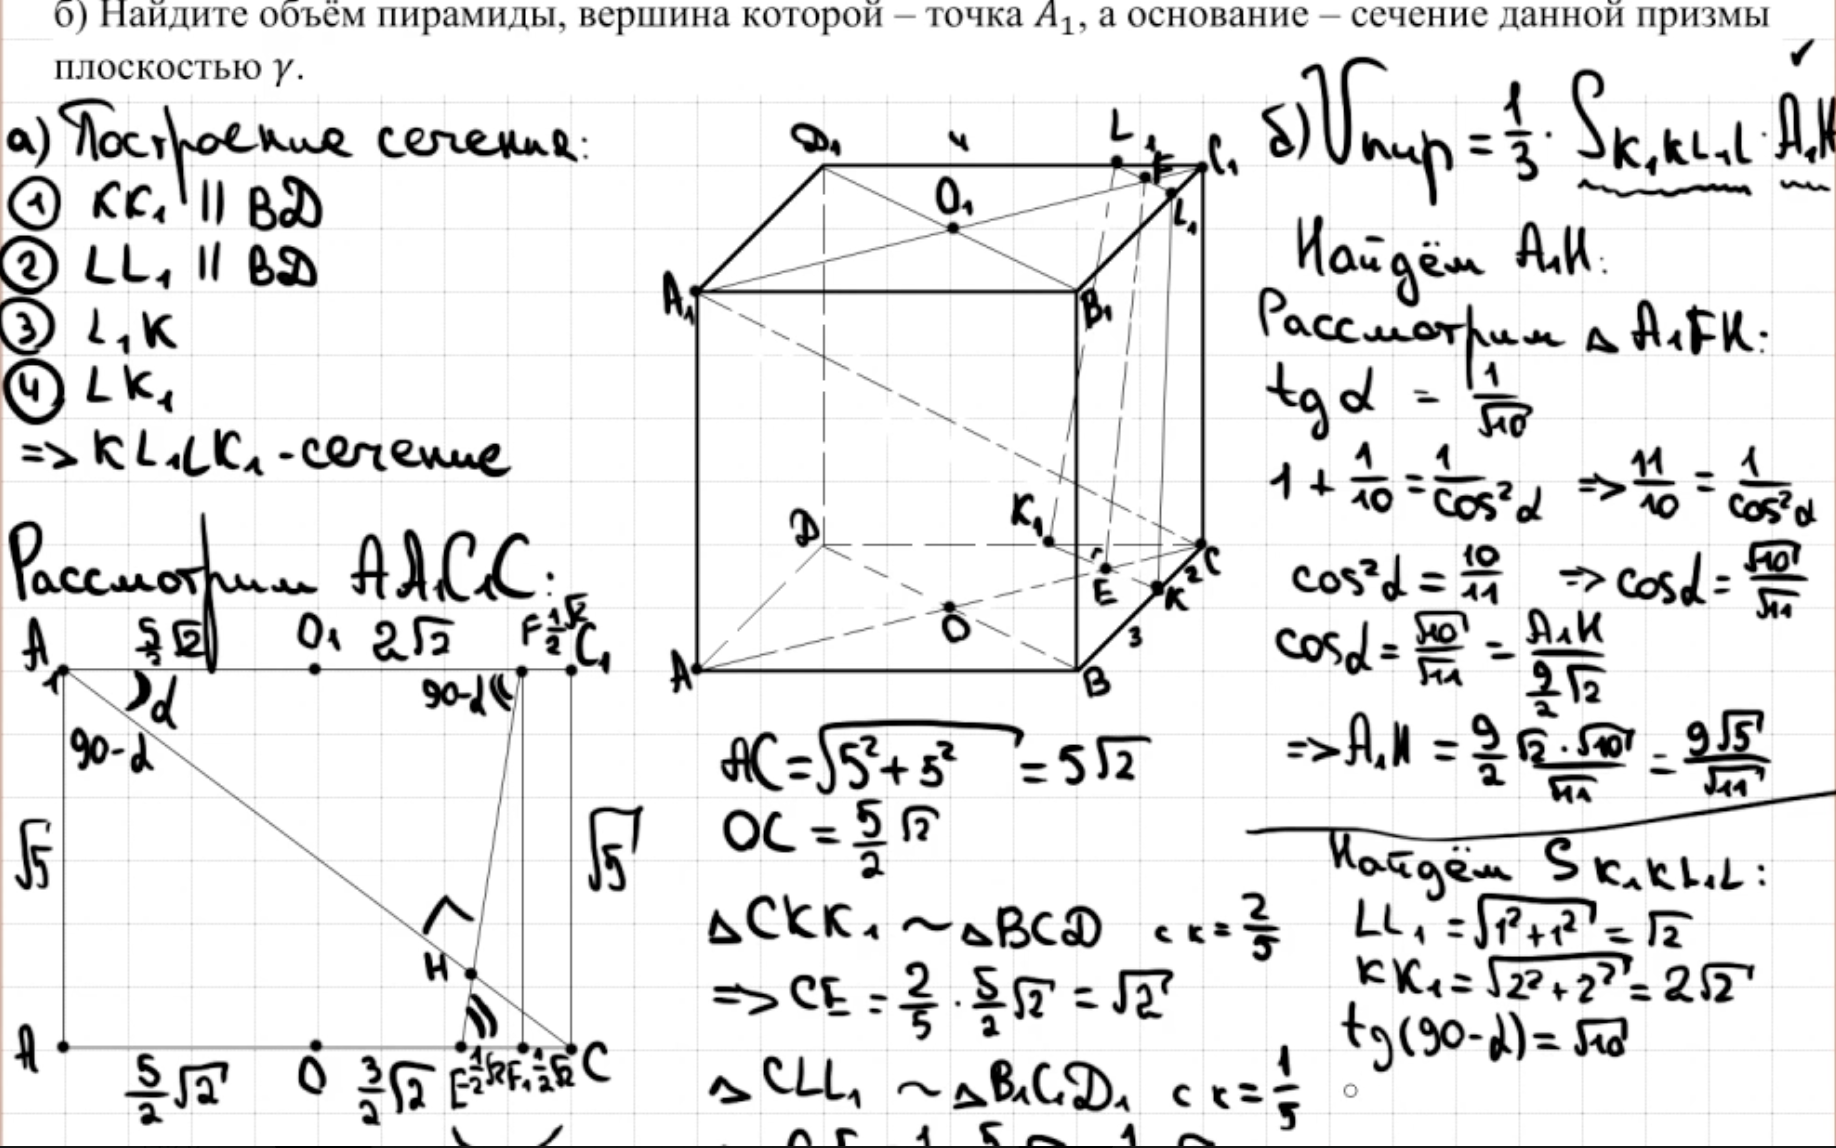 б) Найдите объём пирамиды, вершина которой – точка A₁, а основание – сечение данной призмы
плоскостью γ.
а) Построение сечения:
① KK₁ || BD
② LL₁ || BD
③ L₁K
④ LK₁
=> KL₁LK₁ - сечение
Рассмотрим AA₁C₁C:
A₁ 5/2 √2 O₁ 2√2 F 1/2 √2 C₁
α 90-α
90-α
√5 √5
H
A 5/2 √2 O 3/2 √2 E 1/2 √2 F₁ 1/2 √2 C
D₁ 4 L 1 F C₁
O₁ L₁
A₁ B₁
D K₁ C
E K 2
O 3
A B
AC = √(5² + 5²) = 5√2
OC = 5/2 √2
△CKK₁ ~ △BCD с k = 2/5
=> CE = 2/5 · 5/2 √2 = √2
△CLL₁ ~ △B₁C₁D₁ с k = 1/5
б) Vпир = 1/3 · S K₁KL₁L · A₁H
Найдём A₁H:
Рассмотрим △A₁FH:
tg α = 1/√10
1 + 1/10 = 1/cos²α => 11/10 = 1/cos²α
cos²α = 10/11 => cosα = √10/√11
cosα = √10/√11 = A₁H/(9/2 √2)
=> A₁H = 9/2 √2·√10/√11 = 9√5/√11
Найдём S K₁KL₁L:
LL₁ = √(1² + 1²) = √2
KK₁ = √(2² + 2²) = 2√2
tg(90-α) = √10